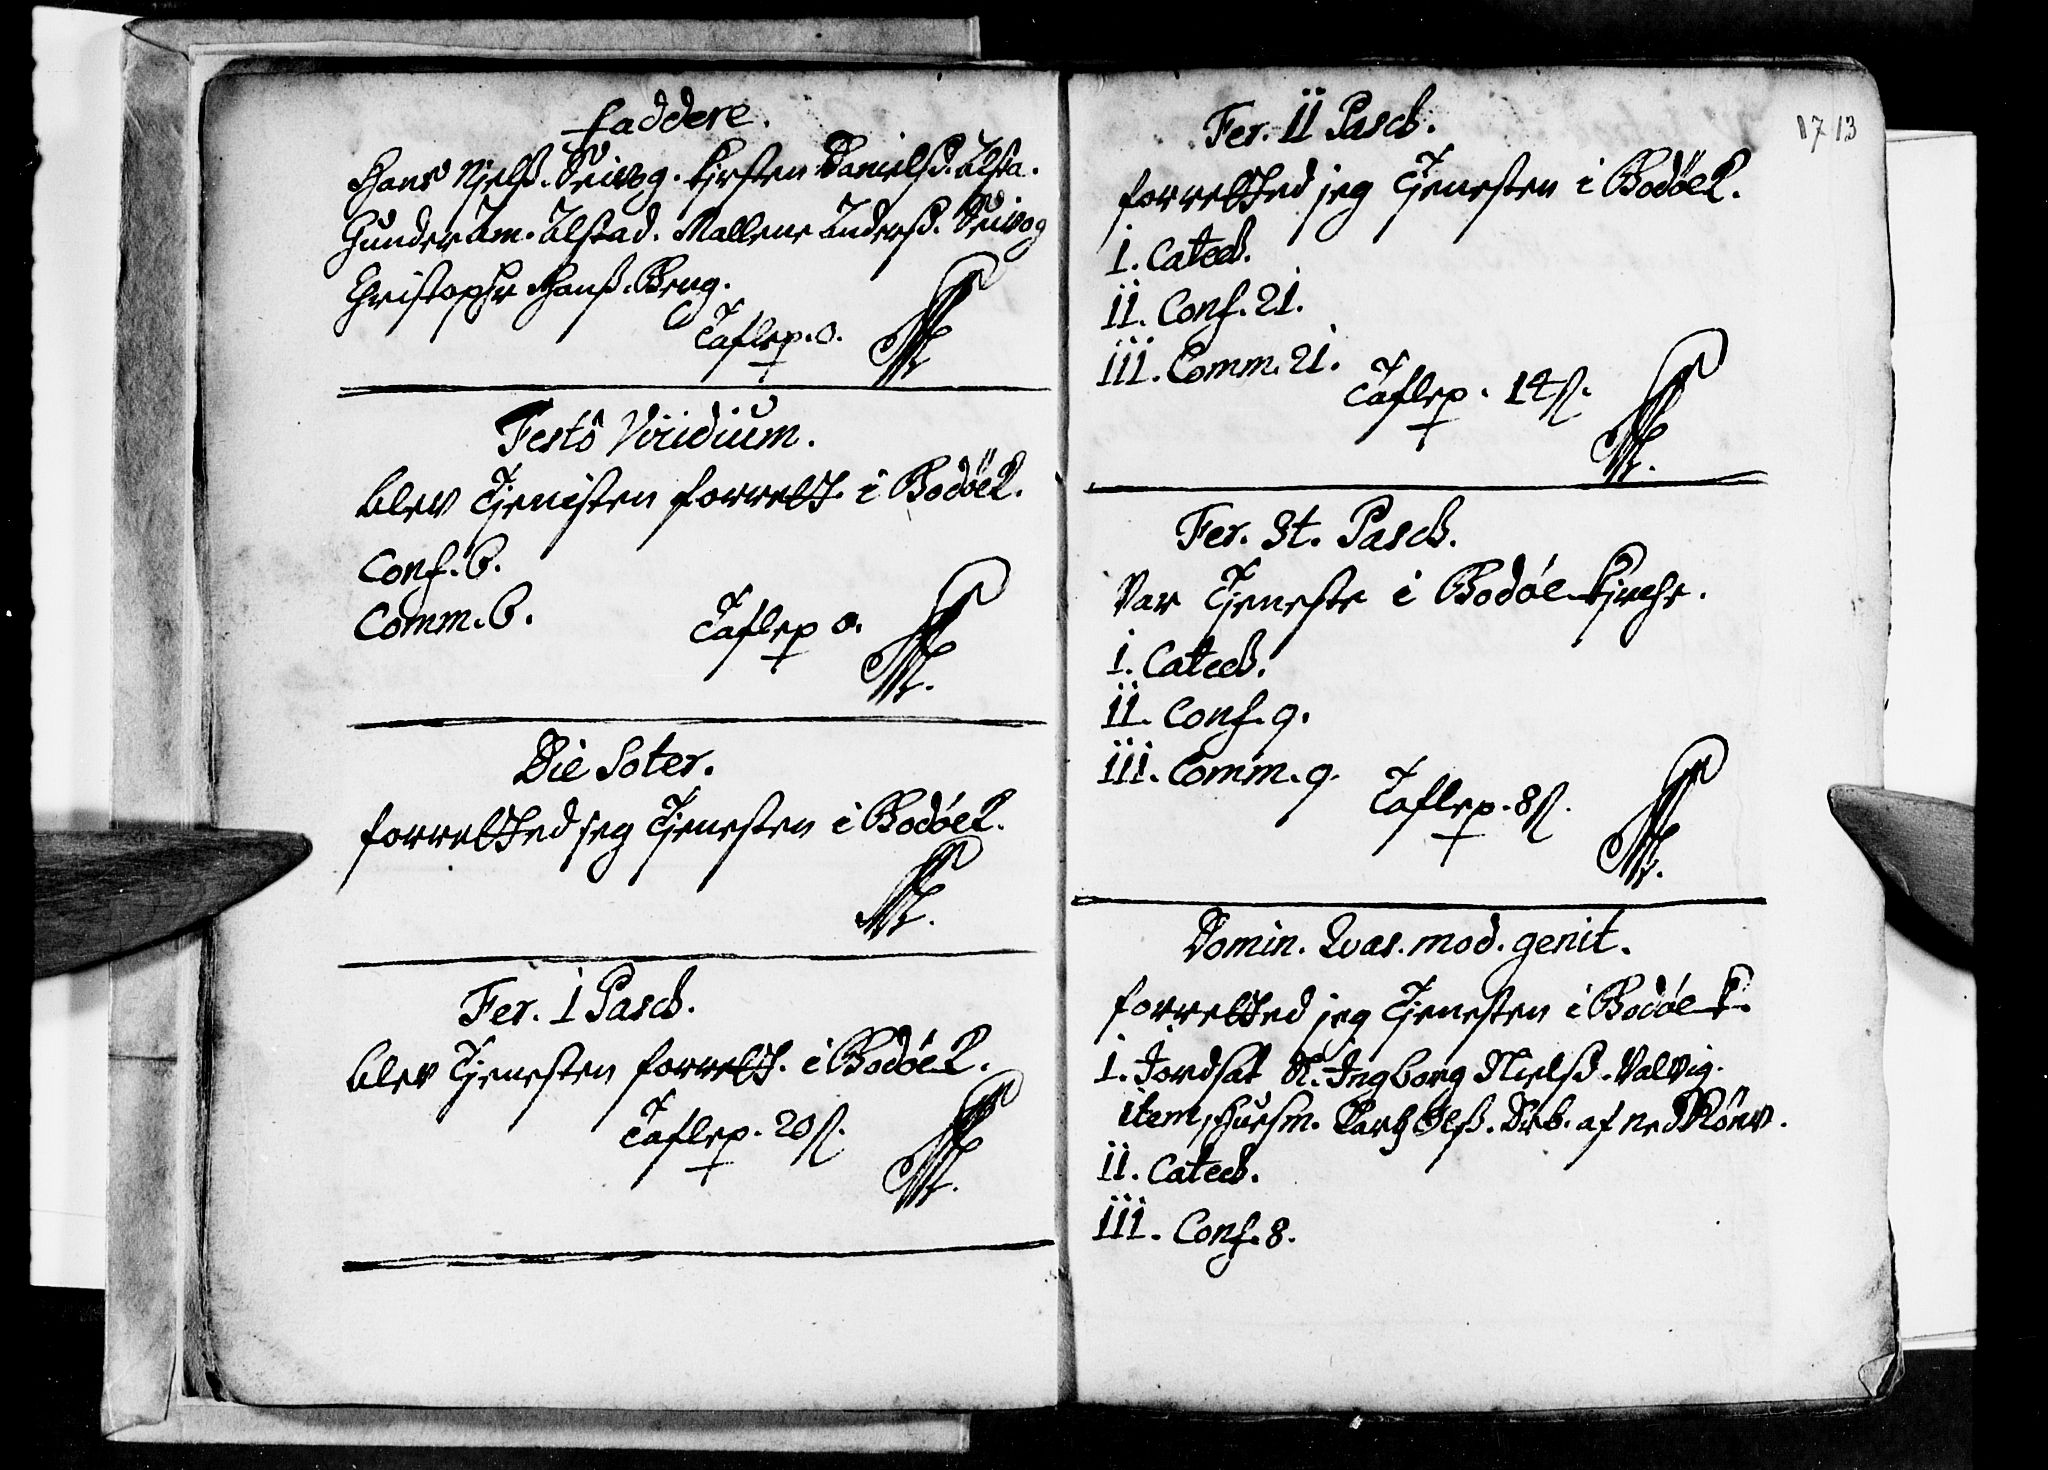 Faddere.
Hans Njelß. Seivog. Kirsten Danielsd. Alsta.
Gunder Am. Alstad. Mallene Andersd. Seivog
Christopher Hanß. Berg.
Taflep. 0.
Festo Viridium.
blev Tjenisten forrett. i Bodöe K.
Conf. 6.
Comm. 6.
Taflep 0.
Die Soter.
forretted jeg Tjenesten i Bodöe K.
Fer. I Pasch.
blev Tjenesten forrett. i Bodöe K.
Taflep. 20 ß.
1713
Fer. II Pasch.
forretted jeg Tjenesten i Bodöe K.
I. Catech.
II. Conf. 21.
III. Comm. 21.
Taflep. 14 ß.
Fer. 3t. Pasch.
Var Tjeneste i Bodöe Kirche.
I. Catech.
II. Conf. 9.
III. Comm. 9.
Taflep. 8 ß.
Domin. Qvas. mod. genit.
forretted jeg Tjenesten i Bodöe K.
I. Jordsat K. Ingborg Nielsd. Valvig.
item, Huusm. Lars Olß. af ned Rönv.
II. Catech.
III. Conf. 8.